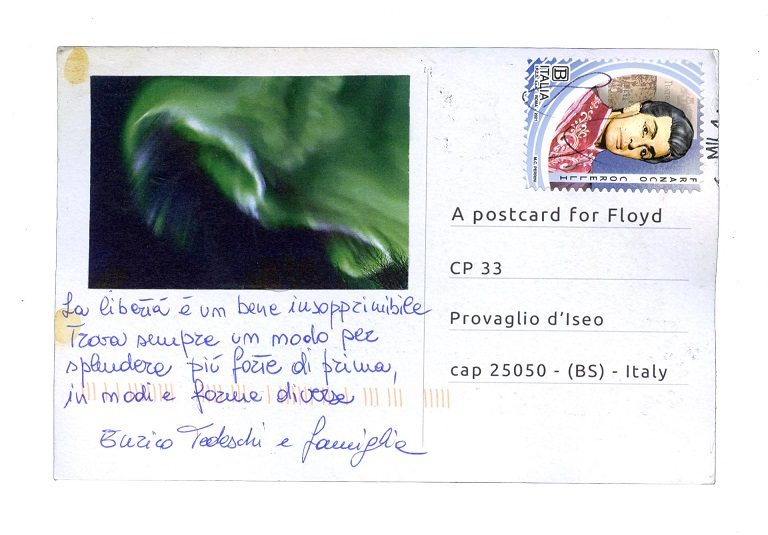 La libertà è un bene insopprimibile
Trova sempre un modo per
splendere più forte di prima,
in modi e forme diverse
Enrico Tedeschi e famiglia
B
ITALIA
I.P.Z.S. S.p.A. - ROMA - 2021
M.C. PERRINI
FRANCO CORELLI
MILA
A postcard for Floyd
CP 33
Provaglio d’Iseo
cap 25050 - (BS) - Italy